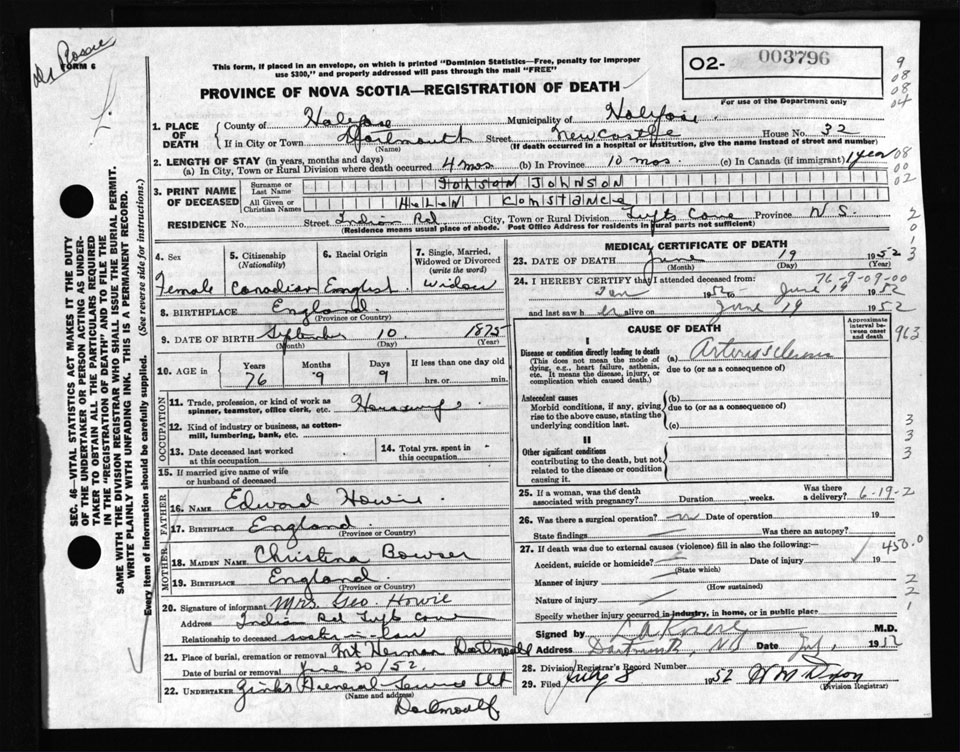 Dr Rosere
FORM 6
This form, if placed in an envelope, on which is printed "Dominion Statistics—Free, penalty for improper
use $300," and properly addressed will pass through the mail "FREE"
PROVINCE OF NOVA SCOTIA—REGISTRATION OF DEATH
O2- 003796
For use of the Department only
9
08
08
04
1. PLACE OF DEATH
County of Halifax Municipality of Halifax
If in City or Town Dartmouth Street Newcastle House No. 32
(Name) (If death occurred in a hospital or institution, give the name instead of street and number)
2. LENGTH OF STAY (in years, months and days)
(a) In City, Town or Rural Division where death occurred 4 mos (b) In Province 10 mos. (c) In Canada (if immigrant) 1 year
08
00
02
3. PRINT NAME OF DECEASED
Surname or Last Name JOHNSON
All Given or Christian Names HELEN CONSTANCE
RESIDENCE No. Street Indian Rd City, Town or Rural Division Tufts Cove Province N.S.
(Residence means usual place of abode. Post Office Address for residents in rural parts not sufficient)
2
0
1
3
4. Sex Female
5. Citizenship (Nationality) Canadian
6. Racial Origin English
7. Single, Married, Widowed or Divorced (write the word) Widow
8. BIRTHPLACE England
(Province or Country)
9. DATE OF BIRTH September 10 1875
(Month) (Day) (Year)
10. AGE in Years Months Days If less than one day old
76 9 9 hrs. or min.
OCCUPATION
11. Trade, profession, or kind of work as spinner, teamster, office clerk, etc. Housewife
12. Kind of industry or business, as cotton-mill, lumbering, bank, etc.
13. Date deceased last worked at this occupation
14. Total yrs. spent in this occupation
15. If married give name of wife or husband of deceased
FATHER
16. NAME Edward Howie
17. BIRTHPLACE England
(Province or Country)
MOTHER
18. MAIDEN NAME Christina Bowser
19. BIRTHPLACE England
(Province or Country)
20. Signature of informant Mrs. Geo. Howie
Address Indian Rd Tufts Cove
Relationship to deceased sister-in-law
21. Place of burial, cremation or removal Mt Herman Dartmouth
Date of burial or removal June 20/52.
22. UNDERTAKER General Service Ltd
(Name and address)
Dartmouth
MEDICAL CERTIFICATE OF DEATH
23. DATE OF DEATH June 19 1952
(Month) (Day) (Year)
76-9-09-00
24. I HEREBY CERTIFY that I attended deceased from:
Jan 1952 to June 19 1952
and last saw her alive on June 19 1952
CAUSE OF DEATH
Approximate interval between onset and death
963
I
Disease or condition directly leading to death (a) Arteriosclerosis
(This does not mean the mode of dying, e.g., heart failure, asthenia, etc. It means the disease, injury, or complication which caused death.)
due to (or as a consequence of)
Antecedent causes
Morbid conditions, if any, giving rise to the above cause, stating the underlying condition last.
(b)
due to (or as a consequence of)
(c)
II
Other significant conditions
contributing to the death, but not related to the disease or condition causing it.
3
3
3
25. If a woman, was the death associated with pregnancy? Duration weeks. Was there a delivery? 6-19-2
26. Was there a surgical operation? no Date of operation 19
State findings Was there an autopsy?
27. If death was due to external causes (violence) fill in also the following: 450.0
Accident, suicide or homicide? Date of injury 19
(State which)
Manner of injury
(How sustained)
Nature of injury
Specify whether injury occurred in industry, in home, or in public place
2
2
1
Signed by M.D.
Address Dartmouth, NS Date July, 1952
28. Division Registrar's Record Number
29. Filed July 8 1952 W M Dyson
(Division Registrar)
SEC. 46—VITAL STATISTICS ACT MAKES IT THE DUTY
OF THE UNDERTAKER OR PERSON ACTING AS UNDER-
TAKER TO OBTAIN ALL THE PARTICULARS REQUIRED
IN THE "REGISTRATION OF DEATH" AND TO FILE THE
SAME WITH THE DIVISION REGISTRAR WHO SHALL ISSUE THE BURIAL PERMIT.
WRITE PLAINLY WITH UNFADING INK. THIS IS A PERMANENT RECORD.
Every item of information should be carefully supplied. (See reverse side for instructions.)